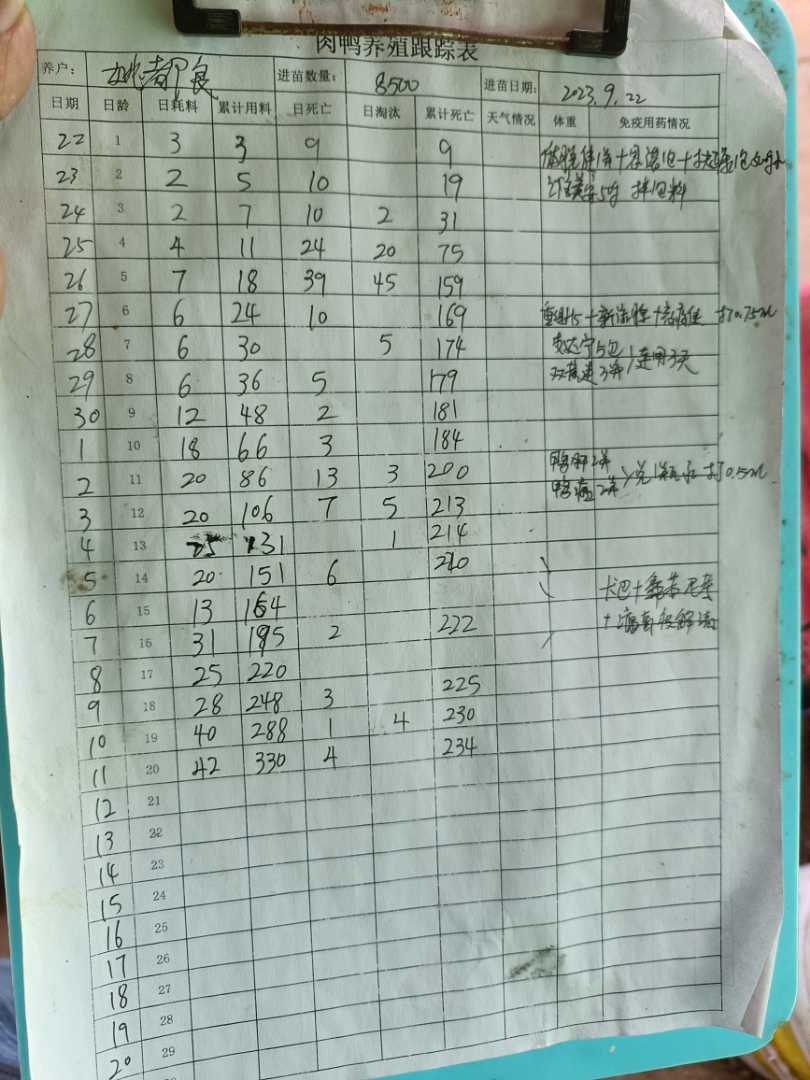 肉鸭养殖跟踪表
养户： 进苗数量： 8500 进苗日期： 2023.9.22
日期 日龄 日耗料 累计用料 日死亡 日淘汰 累计死亡 天气情况 体重 免疫用药情况
22 1 3 3 9 9
23 2 2 5 10 19
24 3 2 7 10 2 31
25 4 4 11 24 20 75
26 5 7 18 39 45 159
27 6 6 24 10 169 打0.75ml
28 7 6 30 5 174 5包
29 8 6 36 5 179 连用3天
30 9 12 48 2 181
1 10 18 66 3 184
2 11 20 86 13 3 200 打0.5ml
3 12 20 106 7 5 213
4 13 25 131 1 214
5 14 20 151 6 220
6 15 13 164
7 16 31 195 2 222
8 17 25 220
9 18 28 248 3 225
10 19 40 288 1 4 230
11 20 42 330 4 234
12 21
13 22
14 23
15 24
16 25
17 26
18 27
19 28
20 29